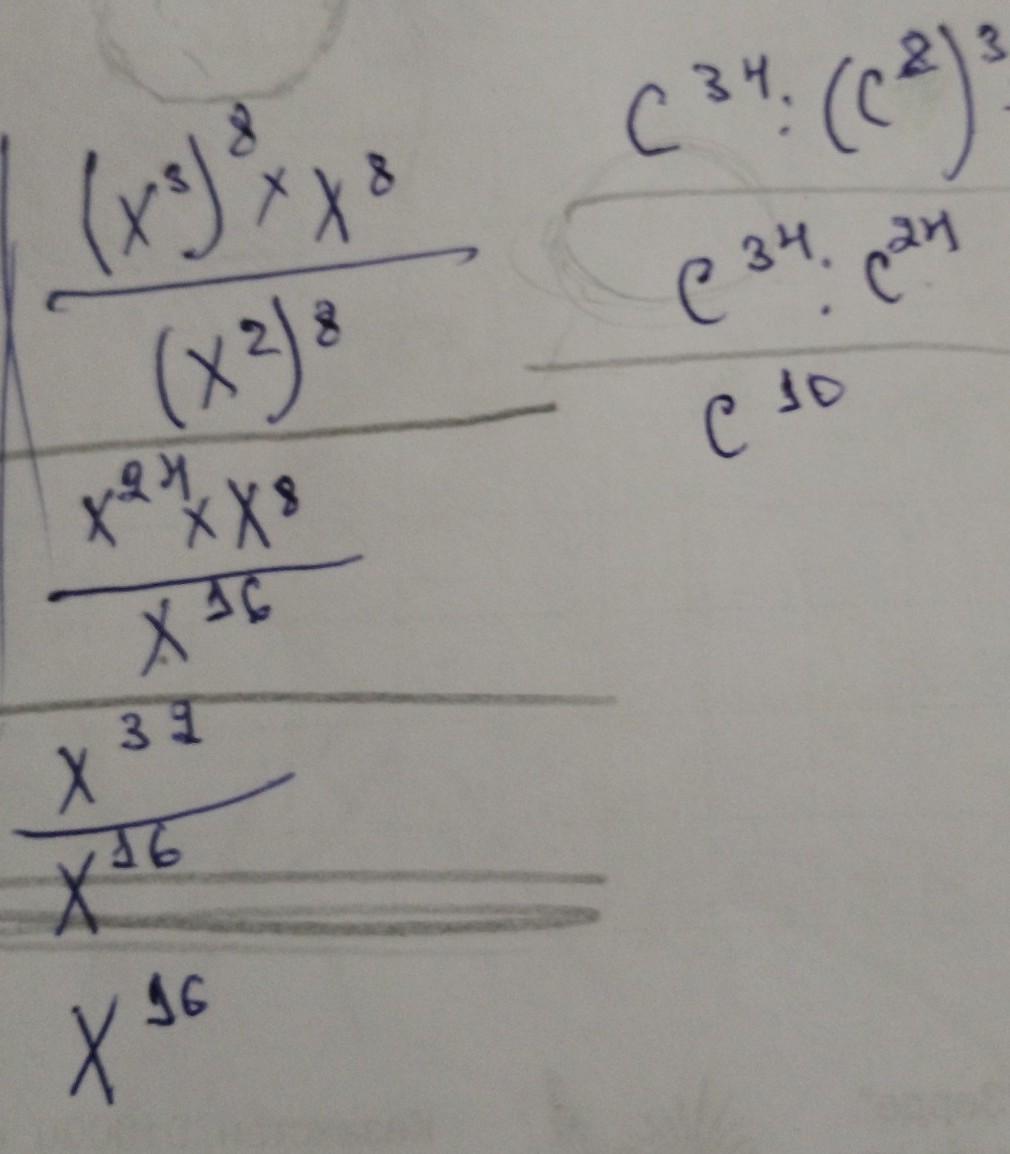 (x³)⁸ × x⁸
(x²)⁸
x²⁴ × x⁸
x¹⁶
x³²
x¹⁶
x¹⁶
c³⁴ : (c⁸)³
c³⁴ : c²⁴
c¹⁰